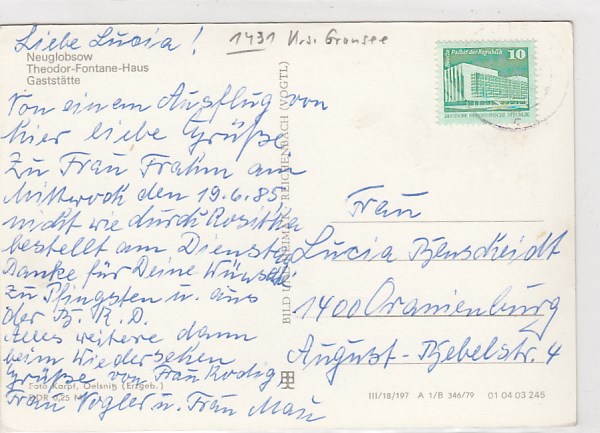 Liebe Lucia!
1431 Krs. Gransee
Neuglobsow
Theodor-Fontane-Haus
Gaststätte
Von einem Ausflug von
hier liebe Grüße
Zu Frau Frahm am
Mittwoch den 19.6.85
nicht wie durch Rositha
bestellt am Dienstag
Danke für Deine Wünsche
zu Pfingsten u. aus
der B.R.D.
Alles weitere dann
beim Wiedersehen
Grüße von Frau Rodig
Foto Karpf, Oelsnitz (Erzgeb.)
Frau Vogler u. Frau Mau
DDR 0,25 M
BILD UND HEIMAT REICHENBACH (VOGTL)
Palast der Republik
10
DEUTSCHE DEMOKRATISCHE REPUBLIK
Frau
Lucia Benscheidt
1400 Oranienburg
August-Bebelstr. 4
III/18/197 A 1/B 346/79 01 04 03 245